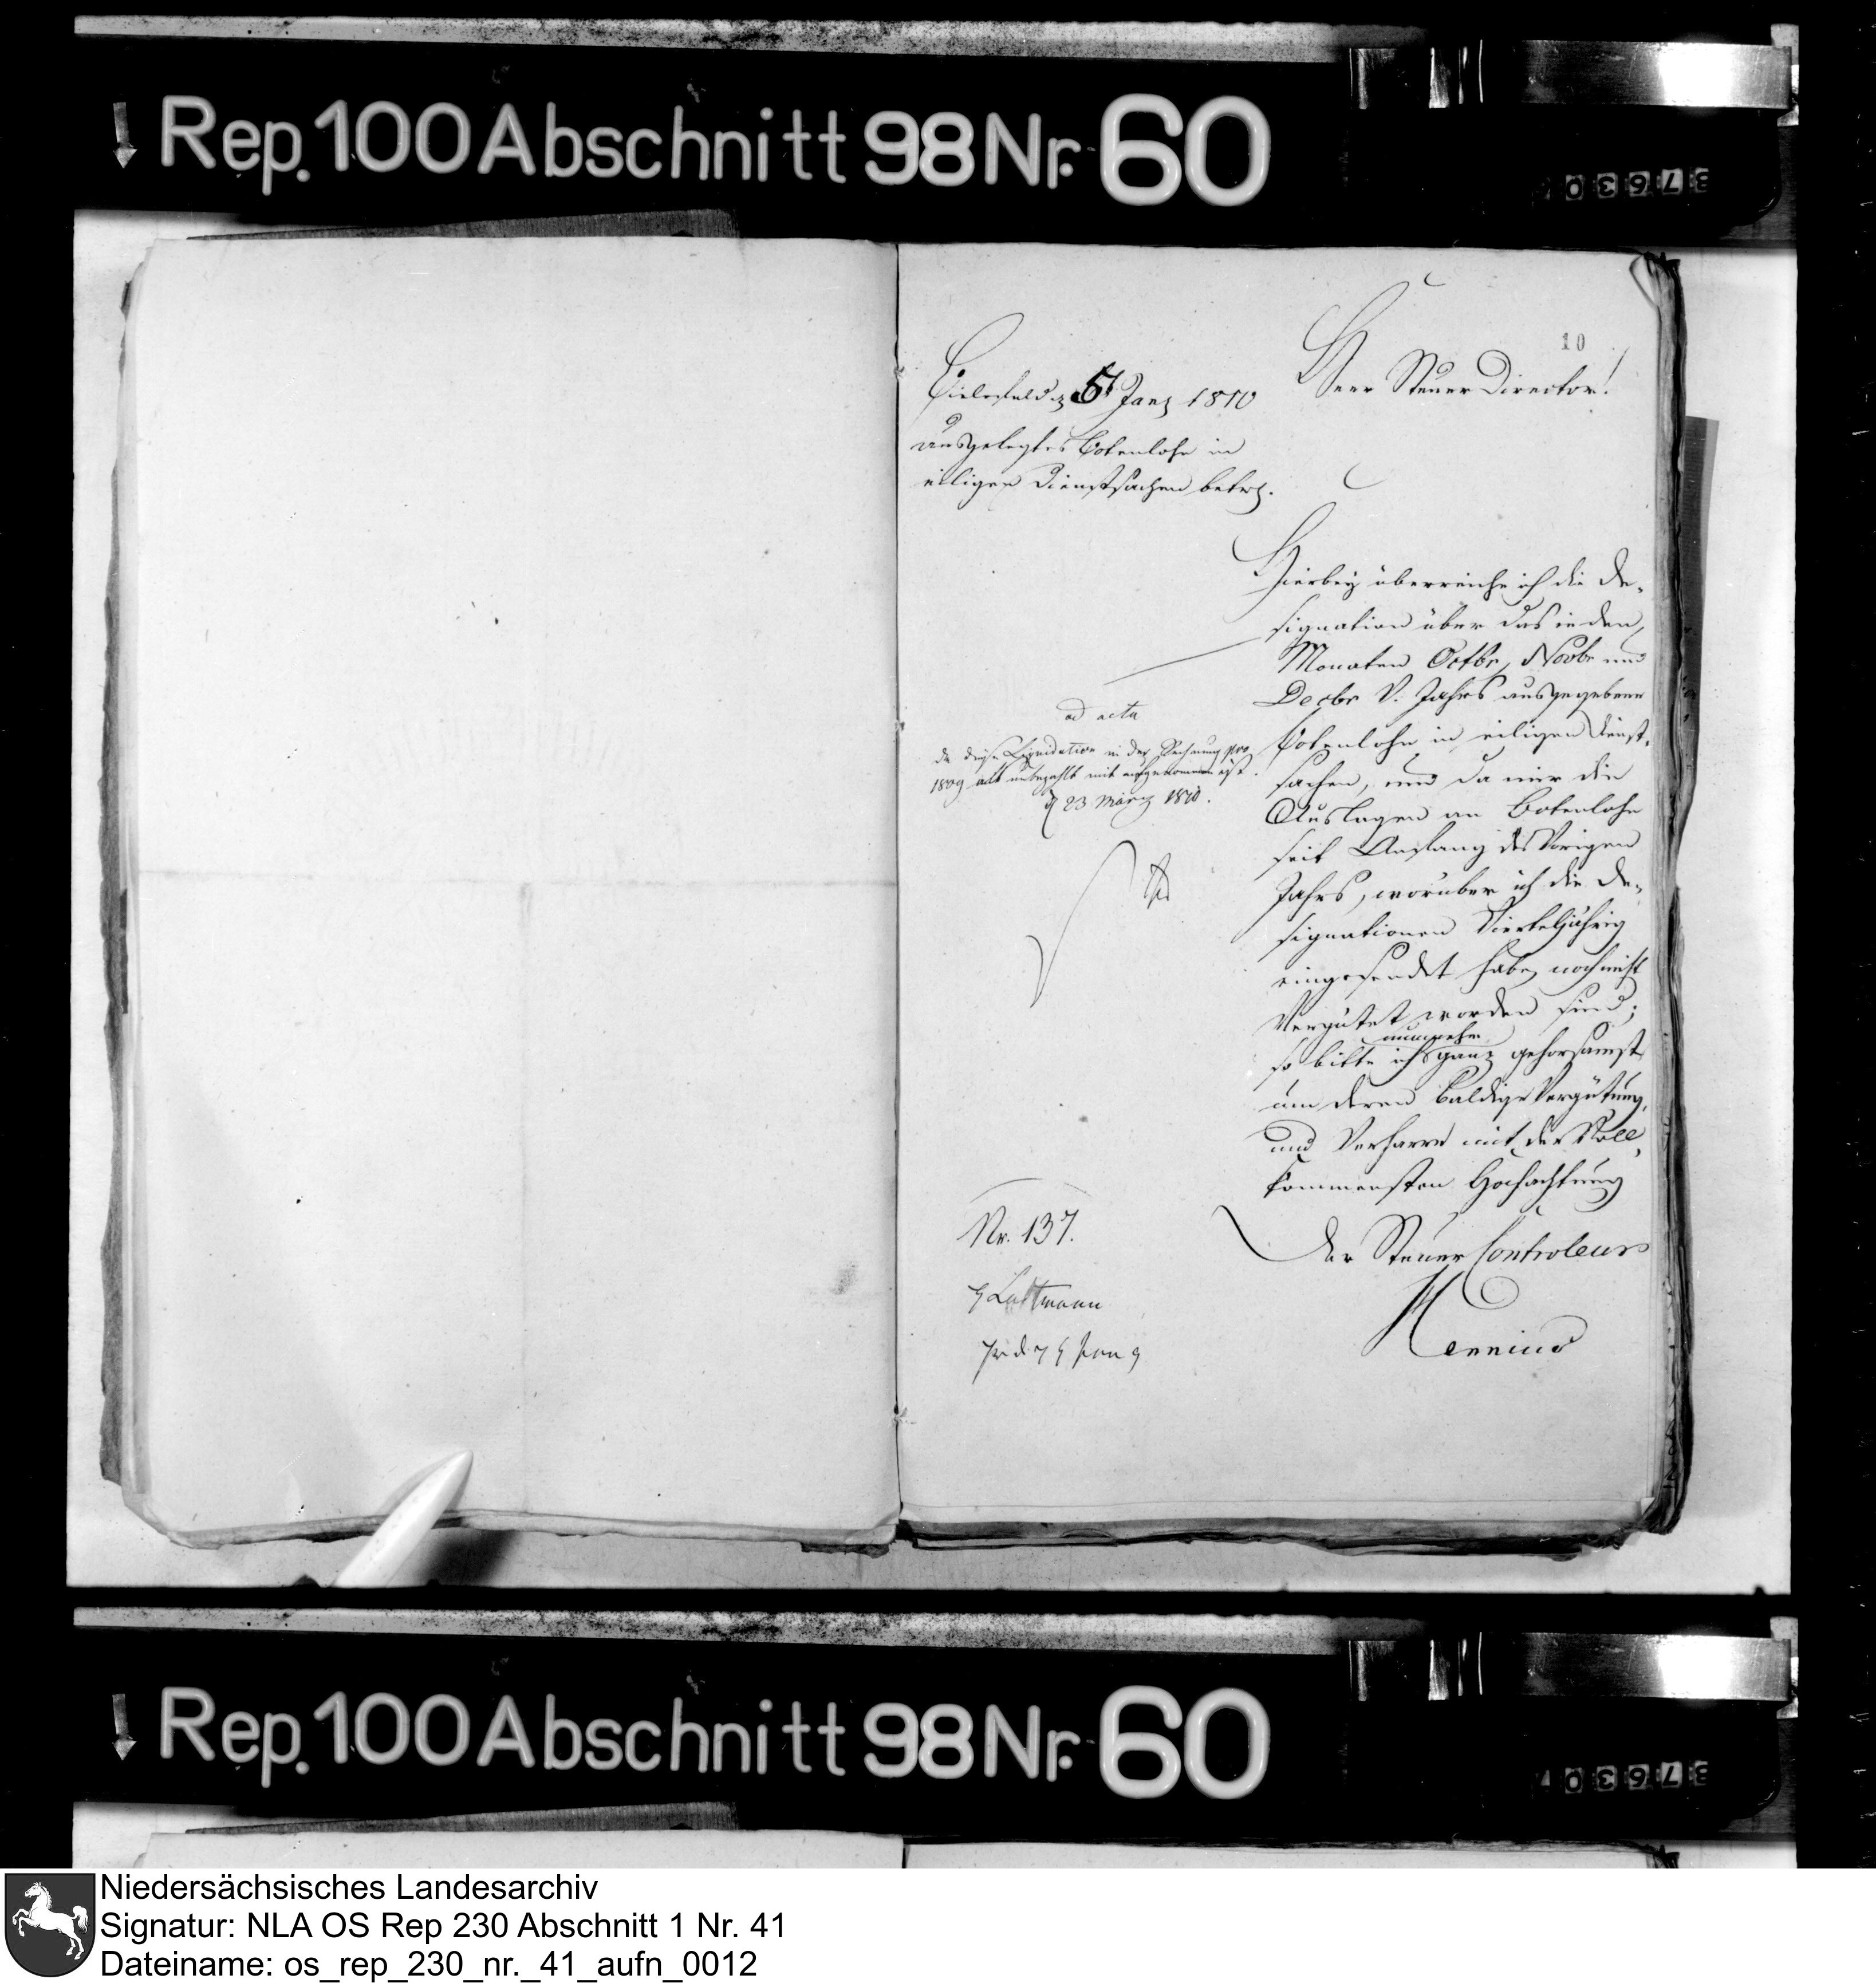 Rep. 100 Abschnitt 98 Nr. 60
37630
10
Bielefeld 5t Jan 1810
ausgelegtes Botenlohn in
eiligen Dienstsachen betr.
Herr Steuer Director!
Hierbey überreiche ich die De-
signation über das in den
Monaten Octbr, Novbr und
Decbr v. Jahrs ausgegebene
Botenlohn in eiligen Dienst-
sachen, und da mir die
Auslagen an Botenlohn
seit Anfang des vorigen
Jahrs, worüber ich die De-
signationen Vierteljährig
eingesendet habe, noch nicht
Vergütet worden sind;
so bitte ich nunmehr ganz gehorsamst
um deren baldige Vergütung,
und Verharre mit der Voll-
kommensten Hochachtung
Der Steuer Controleur
Hennius
ad acta
da diese Liquidation in der Rechnung pro
1809 als unbezahlt mit aufgenommen ist.
23 März 1810.
Nr. 137.
Rep. 100 Abschnitt 98 Nr. 60
37630
Niedersächsisches Landesarchiv
Signatur: NLA OS Rep 230 Abschnitt 1 Nr. 41
Dateiname: os_rep_230_nr._41_aufn_0012